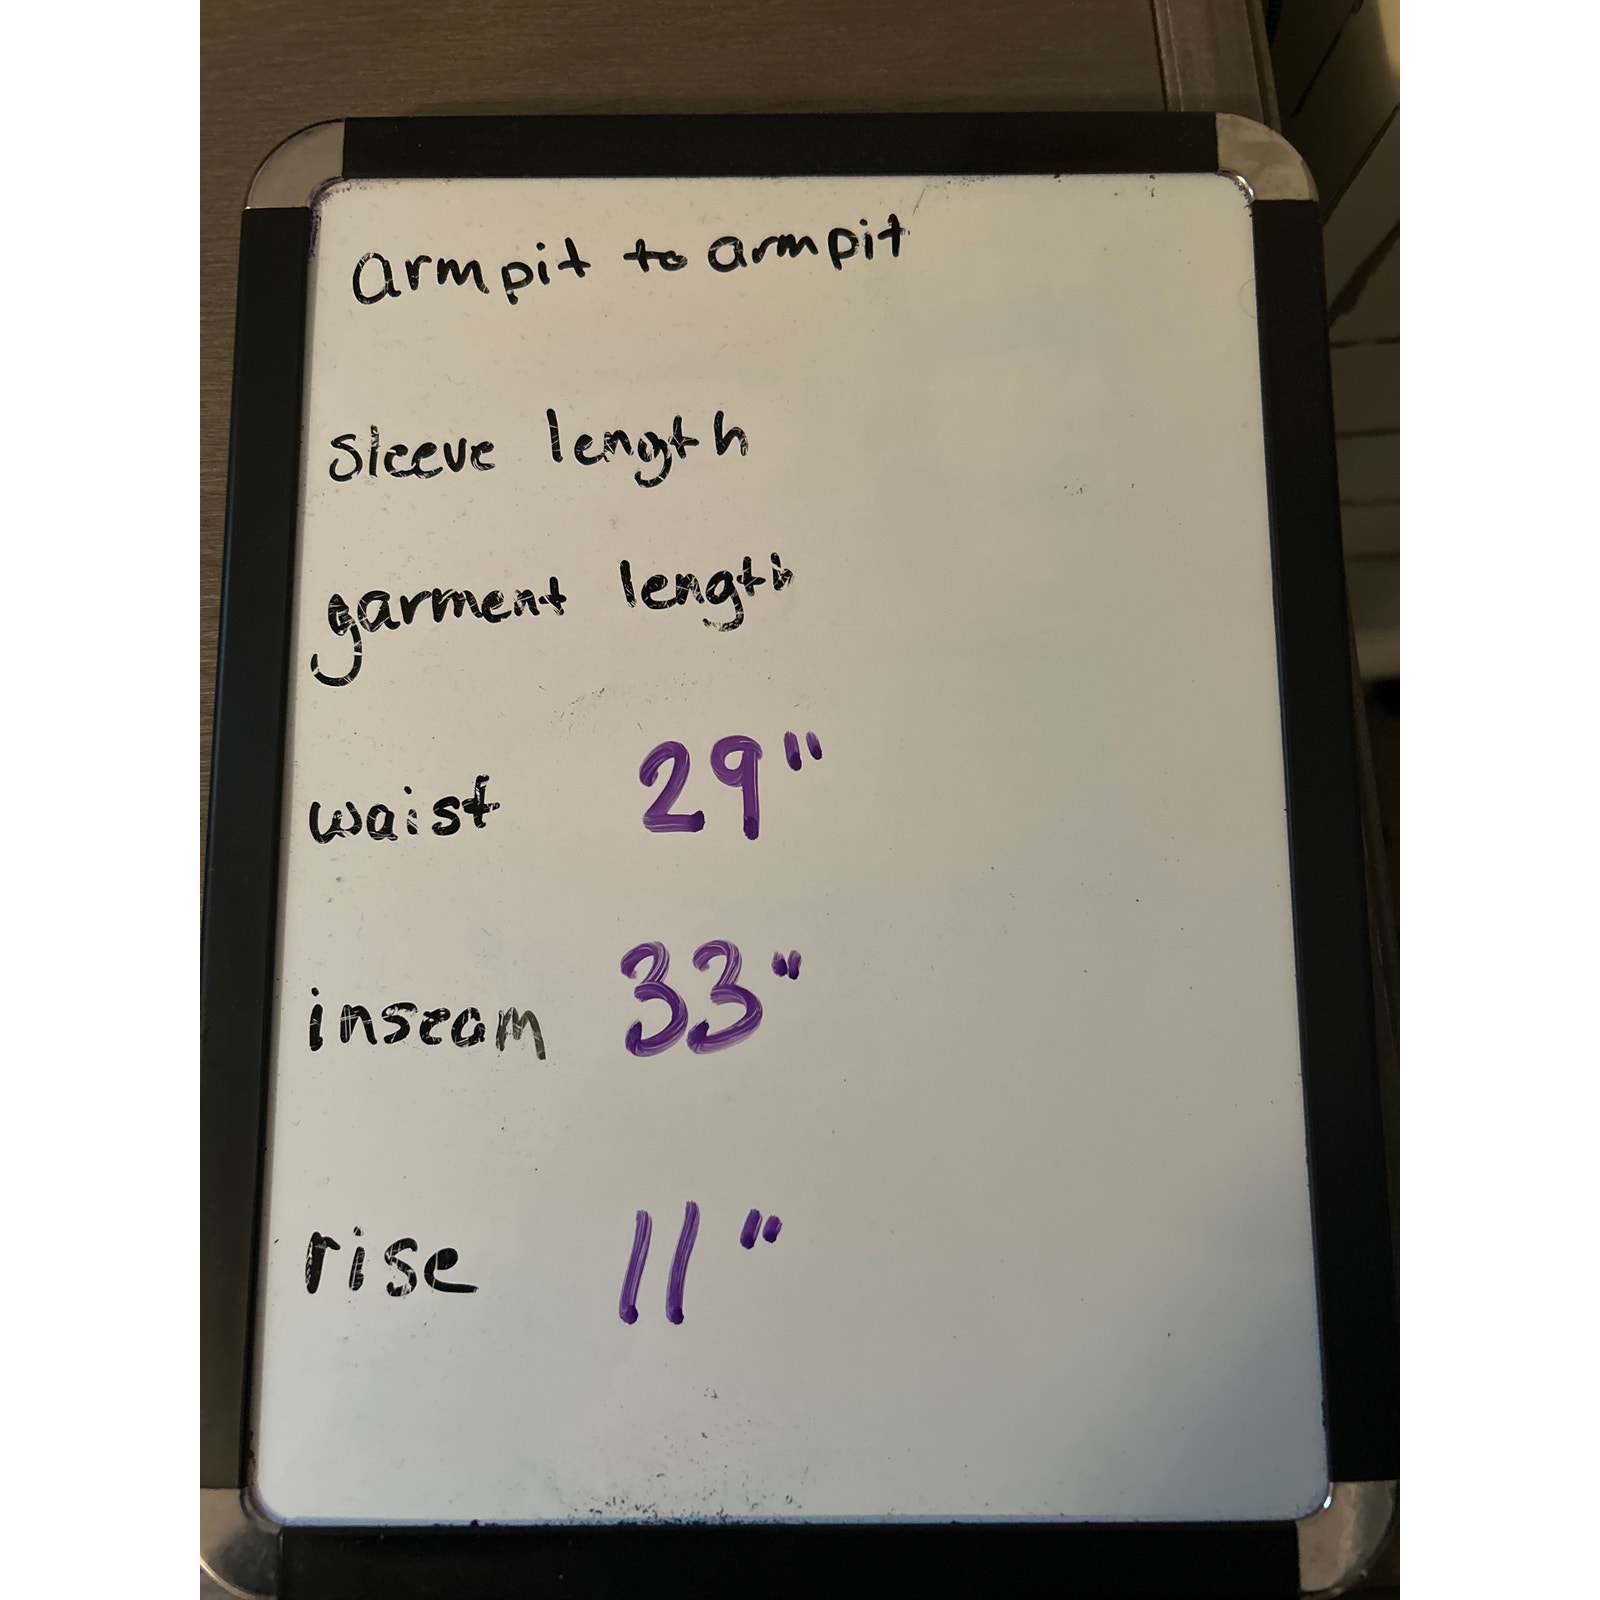 armpit to armpit
sleeve length
garment length
waist 29"
inseam 33"
rise 11"